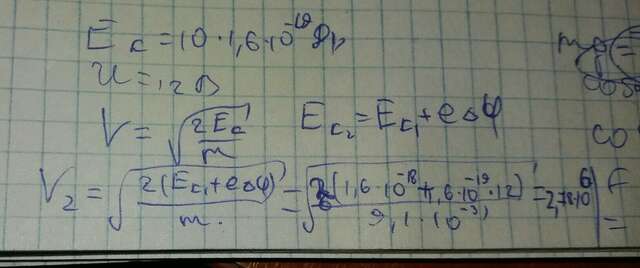 E_c = 10 · 1,6 · 10^-19 Дж
U = 12 В
V = √(2E_c / m)    E_c₂ = E_c₁ + eΔφ
V₂ = √(2(E_c₁ + eΔφ) / m) = √(2(1,6 · 10^-18 + 1,6 · 10^-19 · 12) / 9,1 · 10^-31) = 2,78·10^6